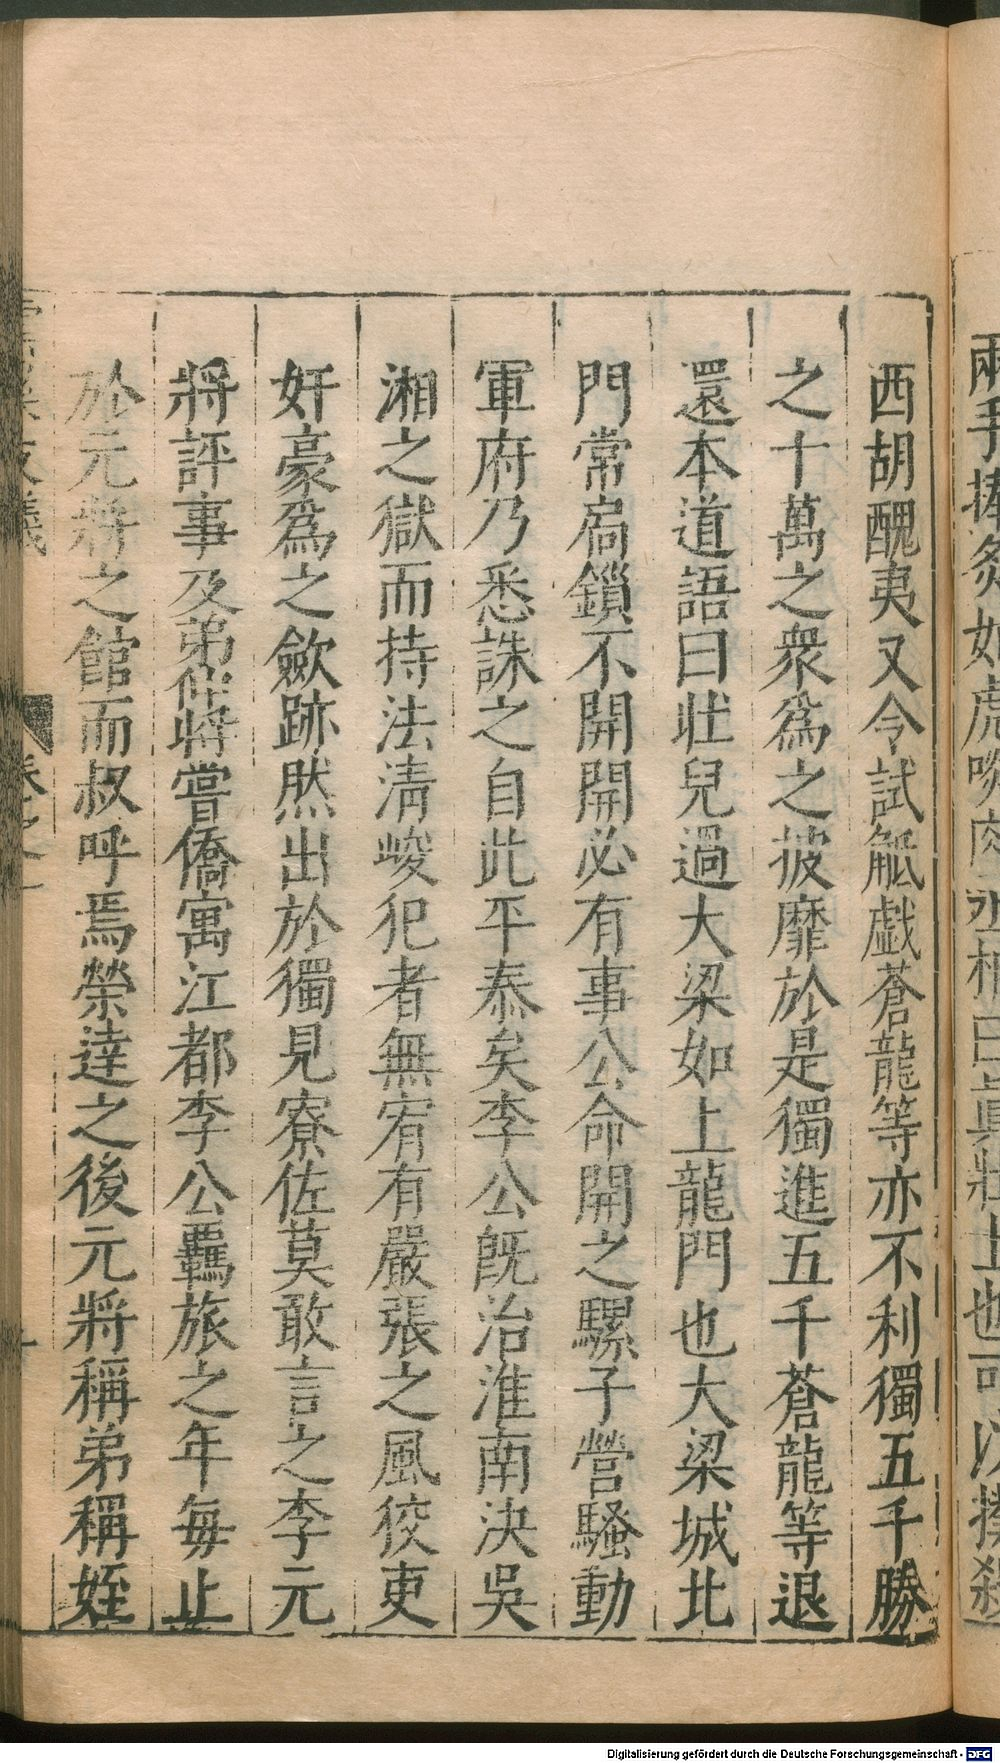 兩手捧
如虎
肉
曰眞壯士也可以
西胡醜夷又今試觝戱蒼龍等亦不利獨五千勝
之十萬之衆爲之披靡於是獨進五千蒼龍等退
還本道語曰壯兒過大梁如上龍門也大梁城北
門常扃鎖不開開必有事公命開之騾子營騷動
軍府乃悉誅之自此平泰矣李公旣治淮南決吳
湘之獄而持法淸峻犯者無宥有嚴張之風狡吏
奸豪爲之歛跡然出於獨見寮佐莫敢言之李元
將評事及弟仲將嘗僑寓江都李公羈旅之年每止
於元將之館而叔呼焉榮達之後元將稱弟稱姪
友議
卷之上
Digitalisierung gefördert durch die Deutsche Forschungsgemeinschaft - DFG